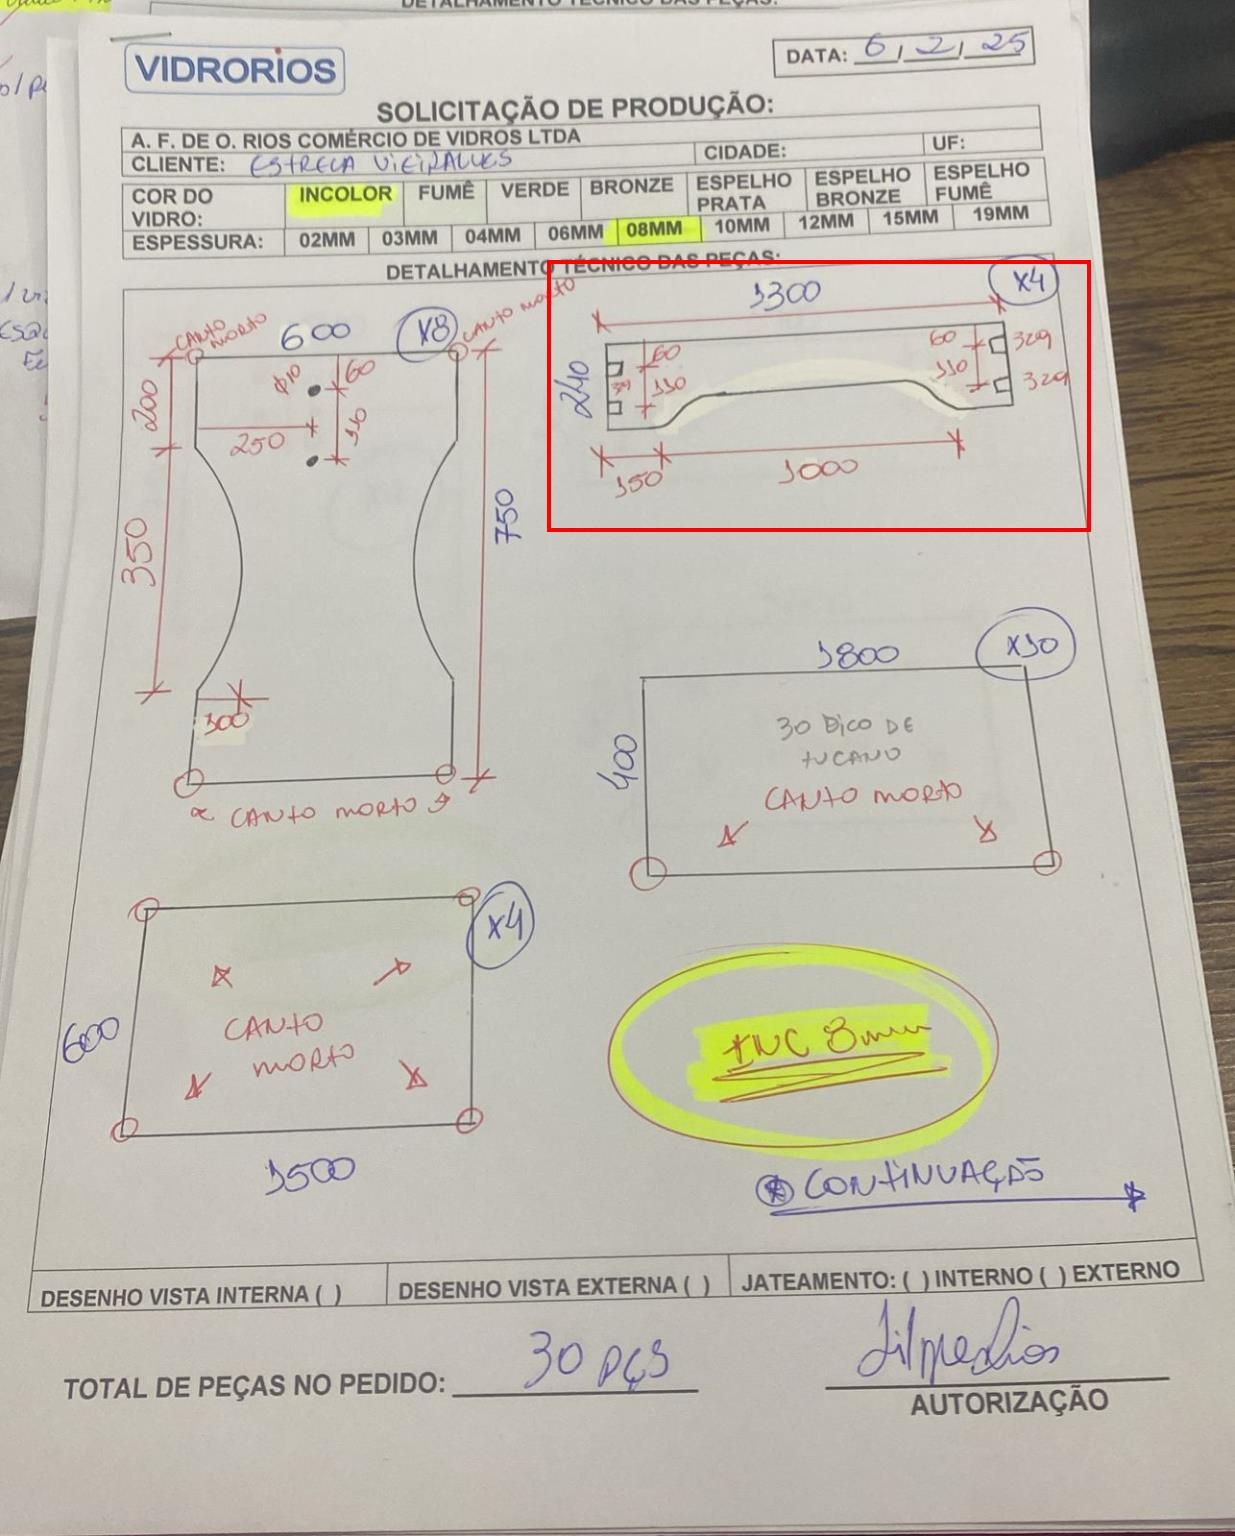 DETALHAMENTO TÉCNICO DAS PEÇAS:
VIDRORIOS
DATA: 6 / 2 / 25
SOLICITAÇÃO DE PRODUÇÃO:
A. F. DE O. RIOS COMÉRCIO DE VIDROS LTDA
CLIENTE: ESTRELA VIEIRALVES CIDADE: UF:
COR DO VIDRO: INCOLOR FUMÊ VERDE BRONZE ESPELHO PRATA ESPELHO BRONZE ESPELHO FUMÊ
ESPESSURA: 02MM 03MM 04MM 06MM 08MM 10MM 12MM 15MM 19MM
DETALHAMENTO TÉCNICO DAS PEÇAS:
CANTO MORTO
600
X8
CANTO MORTO
200
Ø10
60
110
250
350
750
100
CANTO MORTO
1300
X4
240
60
110
60
110
329
329
150
1000
1800
X10
400
30 BICO DE
TUCANO
CANTO MORTO
X4
600
CANTO
MORTO
1500
INC 8mm
CONTINUAÇÃO
DESENHO VISTA INTERNA ( ) DESENHO VISTA EXTERNA ( ) JATEAMENTO: ( ) INTERNO ( ) EXTERNO
TOTAL DE PEÇAS NO PEDIDO: 30 PÇS
AUTORIZAÇÃO